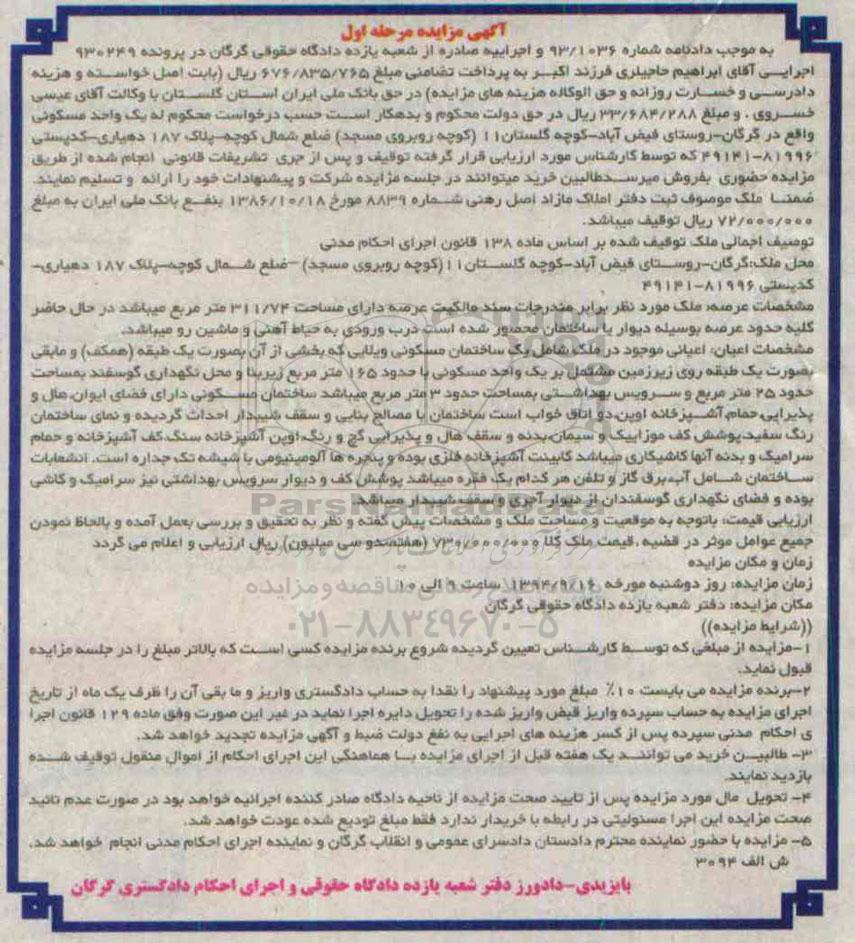 آگهی مزایده مرحله اول
به موجب دادنامه شماره ۹۳/۱۰۳۶ و اجراییه صادره از شعبه یازده دادگاه حقوقی گرگان در پرونده ۹۳۰۲۴۹
اجرایی آقای ابراهیم حاجیلری فرزند اکبر به پرداخت تضامنی مبلغ ۶۷۶/۸۳۵/۷۶۵ ریال (بابت اصل خواسته و هزینه
دادرسی و خسارت روزانه و حق الوکاله هزینه های مزایده) در حق بانک ملی ایران استان گلستان با وکالت آقای عیسی
خسروی . و مبلغ ۳۳/۶۸۴/۲۸۸ ریال در حق دولت محکوم و بدهکار است حسب درخواست محکوم له یک واحد مسکونی
واقع در گرگان-روستای فیض آباد-کوچه گلستان۱۱ (کوچه روبروی مسجد) ضلع شمال کوچه-پلاک ۱۸۷ دهیاری-کدپستی
۴۹۱۴۱-۸۱۹۹۶ که توسط کارشناس مورد ارزیابی قرار گرفته توقیف و پس از جری تشریفات قانونی انجام شده از طریق
مزایده حضوری بفروش میرسدطالبین خرید میتوانند در جلسه مزایده شرکت و پیشنهادات خود را ارائه و تسلیم نمایند.
ضمنا ملک موصوف ثبت دفتر املاک مازاد اصل رهنی شماره ۸۸۳۹ مورخ ۱۳۸۶/۱۰/۱۸ بنفع بانک ملی ایران به مبلغ
۷۲/۰۰۰/۰۰۰ ریال توقیف میباشد.
توصیف اجمالی ملک توقیف شده بر اساس ماده ۱۳۸ قانون اجرای احکام مدنی
محل ملک:گرگان-روستای فیض آباد-کوچه گلستان۱۱(کوچه روبروی مسجد) -ضلع شمال کوچه-پلاک ۱۸۷ دهیاری-
کدپستی ۸۱۹۹۶-۴۹۱۴۱
مشخصات عرصه: ملک مورد نظر برابر مندرجات سند مالکیت عرصه دارای مساحت ۳۱۱/۷۴ متر مربع میباشد در حال حاضر
کلیه حدود عرصه بوسیله دیوار یا ساختمان محصور شده است درب ورودی به حیاط آهنی و ماشین رو میباشد.
مشخصات اعیان: اعیانی موجود در ملک شامل یک ساختمان مسکونی ویلایی که بخشی از آن بصورت یک طبقه (همکف) و مابقی
بصورت یک طبقه روی زیرزمین مشتمل بر یک واحد مسکونی با حدود ۱۶۵ متر مربع زیربنا و محل نگهداری گوسفند بمساحت
حدود ۲۵ متر مربع و سرویس بهداشتی بمساحت حدود ۳ متر مربع میباشد ساختمان مسکونی دارای فضای ایوان،هال و
پذیرایی،حمام،آشپزخانه اوپن،دو اتاق خواب است ساختمان با مصالح بنایی و سقف شیبدار احداث گردیده و نمای ساختمان
رنگ سفید،پوشش کف موزاییک و سیمان،بدنه و سقف هال و پذیرایی گچ و رنگ،اوپن آشپزخانه سنگ،کف آشپزخانه و حمام
سرامیک و بدنه آنها کاشیکاری میباشد کابینت آشپزخانه فلزی بوده و پنجره ها آلومینیومی با شیشه تک جداره است. انشعابات
ساختمان شامل آب،برق گاز و تلفن هر کدام یک فقره میباشد پوشش کف و دیوار سرویس بهداشتی نیز سرامیک و کاشی
بوده و فضای نگهداری گوسفندان از دیوار آجری و سقف شیبدار میباشد.
ارزیابی قیمت: باتوجه به موقعیت و مساحت ملک و مشخصات پیش گفته و نظر به تحقیق و بررسی بعمل آمده و بالحاظ نمودن
جمیع عوامل موثر در قضیه ،قیمت ملک کلا ۷۳۰/۰۰۰/۰۰۰ (هفتصدو سی میلیون) ریال ارزیابی و اعلام می گردد
زمان و مکان مزایده
زمان مزایده: روز دوشنبه مورخه ۱۳۹۴/۹/۱۶ ساعت ۹ الی ۱۰
مکان مزایده: دفتر شعبه یازده دادگاه حقوقی گرگان
((شرایط مزایده))
۱-مزایده از مبلغی که توسط کارشناس تعیین گردیده شروع برنده مزایده کسی است که بالاتر مبلغ را در جلسه مزایده
قبول نماید.
۲-برنده مزایده می بایست ۱۰٪ مبلغ مورد پیشنهاد را نقدا به حساب دادگستری واریز و ما بقی آن را ظرف یک ماه از تاریخ
اجرای مزایده به حساب سپرده واریز قبض واریز شده را تحویل دایره اجرا نماید در غیر این صورت وفق ماده ۱۲۹ قانون اجرا
ی احکام مدنی سپرده پس از کسر هزینه های اجرایی به نفع دولت ضبط و آگهی مزایده تجدید خواهد شد.
۳- طالبین خرید می توانند یک هفته قبل از اجرای مزایده با هماهنگی این اجرای احکام از اموال منقول توقیف شده
بازدید نمایند.
۴- تحویل مال مورد مزایده پس از تایید صحت مزایده از ناحیه دادگاه صادر کننده اجرائیه خواهد بود در صورت عدم تائید
صحت مزایده این اجرا مسئولیتی در رابطه با خریدار ندارد فقط مبلغ تودیع شده عودت خواهد شد.
۵- مزایده با حضور نماینده محترم دادستان دادسرای عمومی و انقلاب گرگان و نماینده اجرای احکام مدنی انجام خواهد شد.
ش الف ۳۰۹۴
بایزیدی-دادورز دفتر شعبه یازده دادگاه حقوقی و اجرای احکام دادگستری گرگان
ParsNamadData
۰۲۱-۸۸۳۴۹۶۷۰-۵